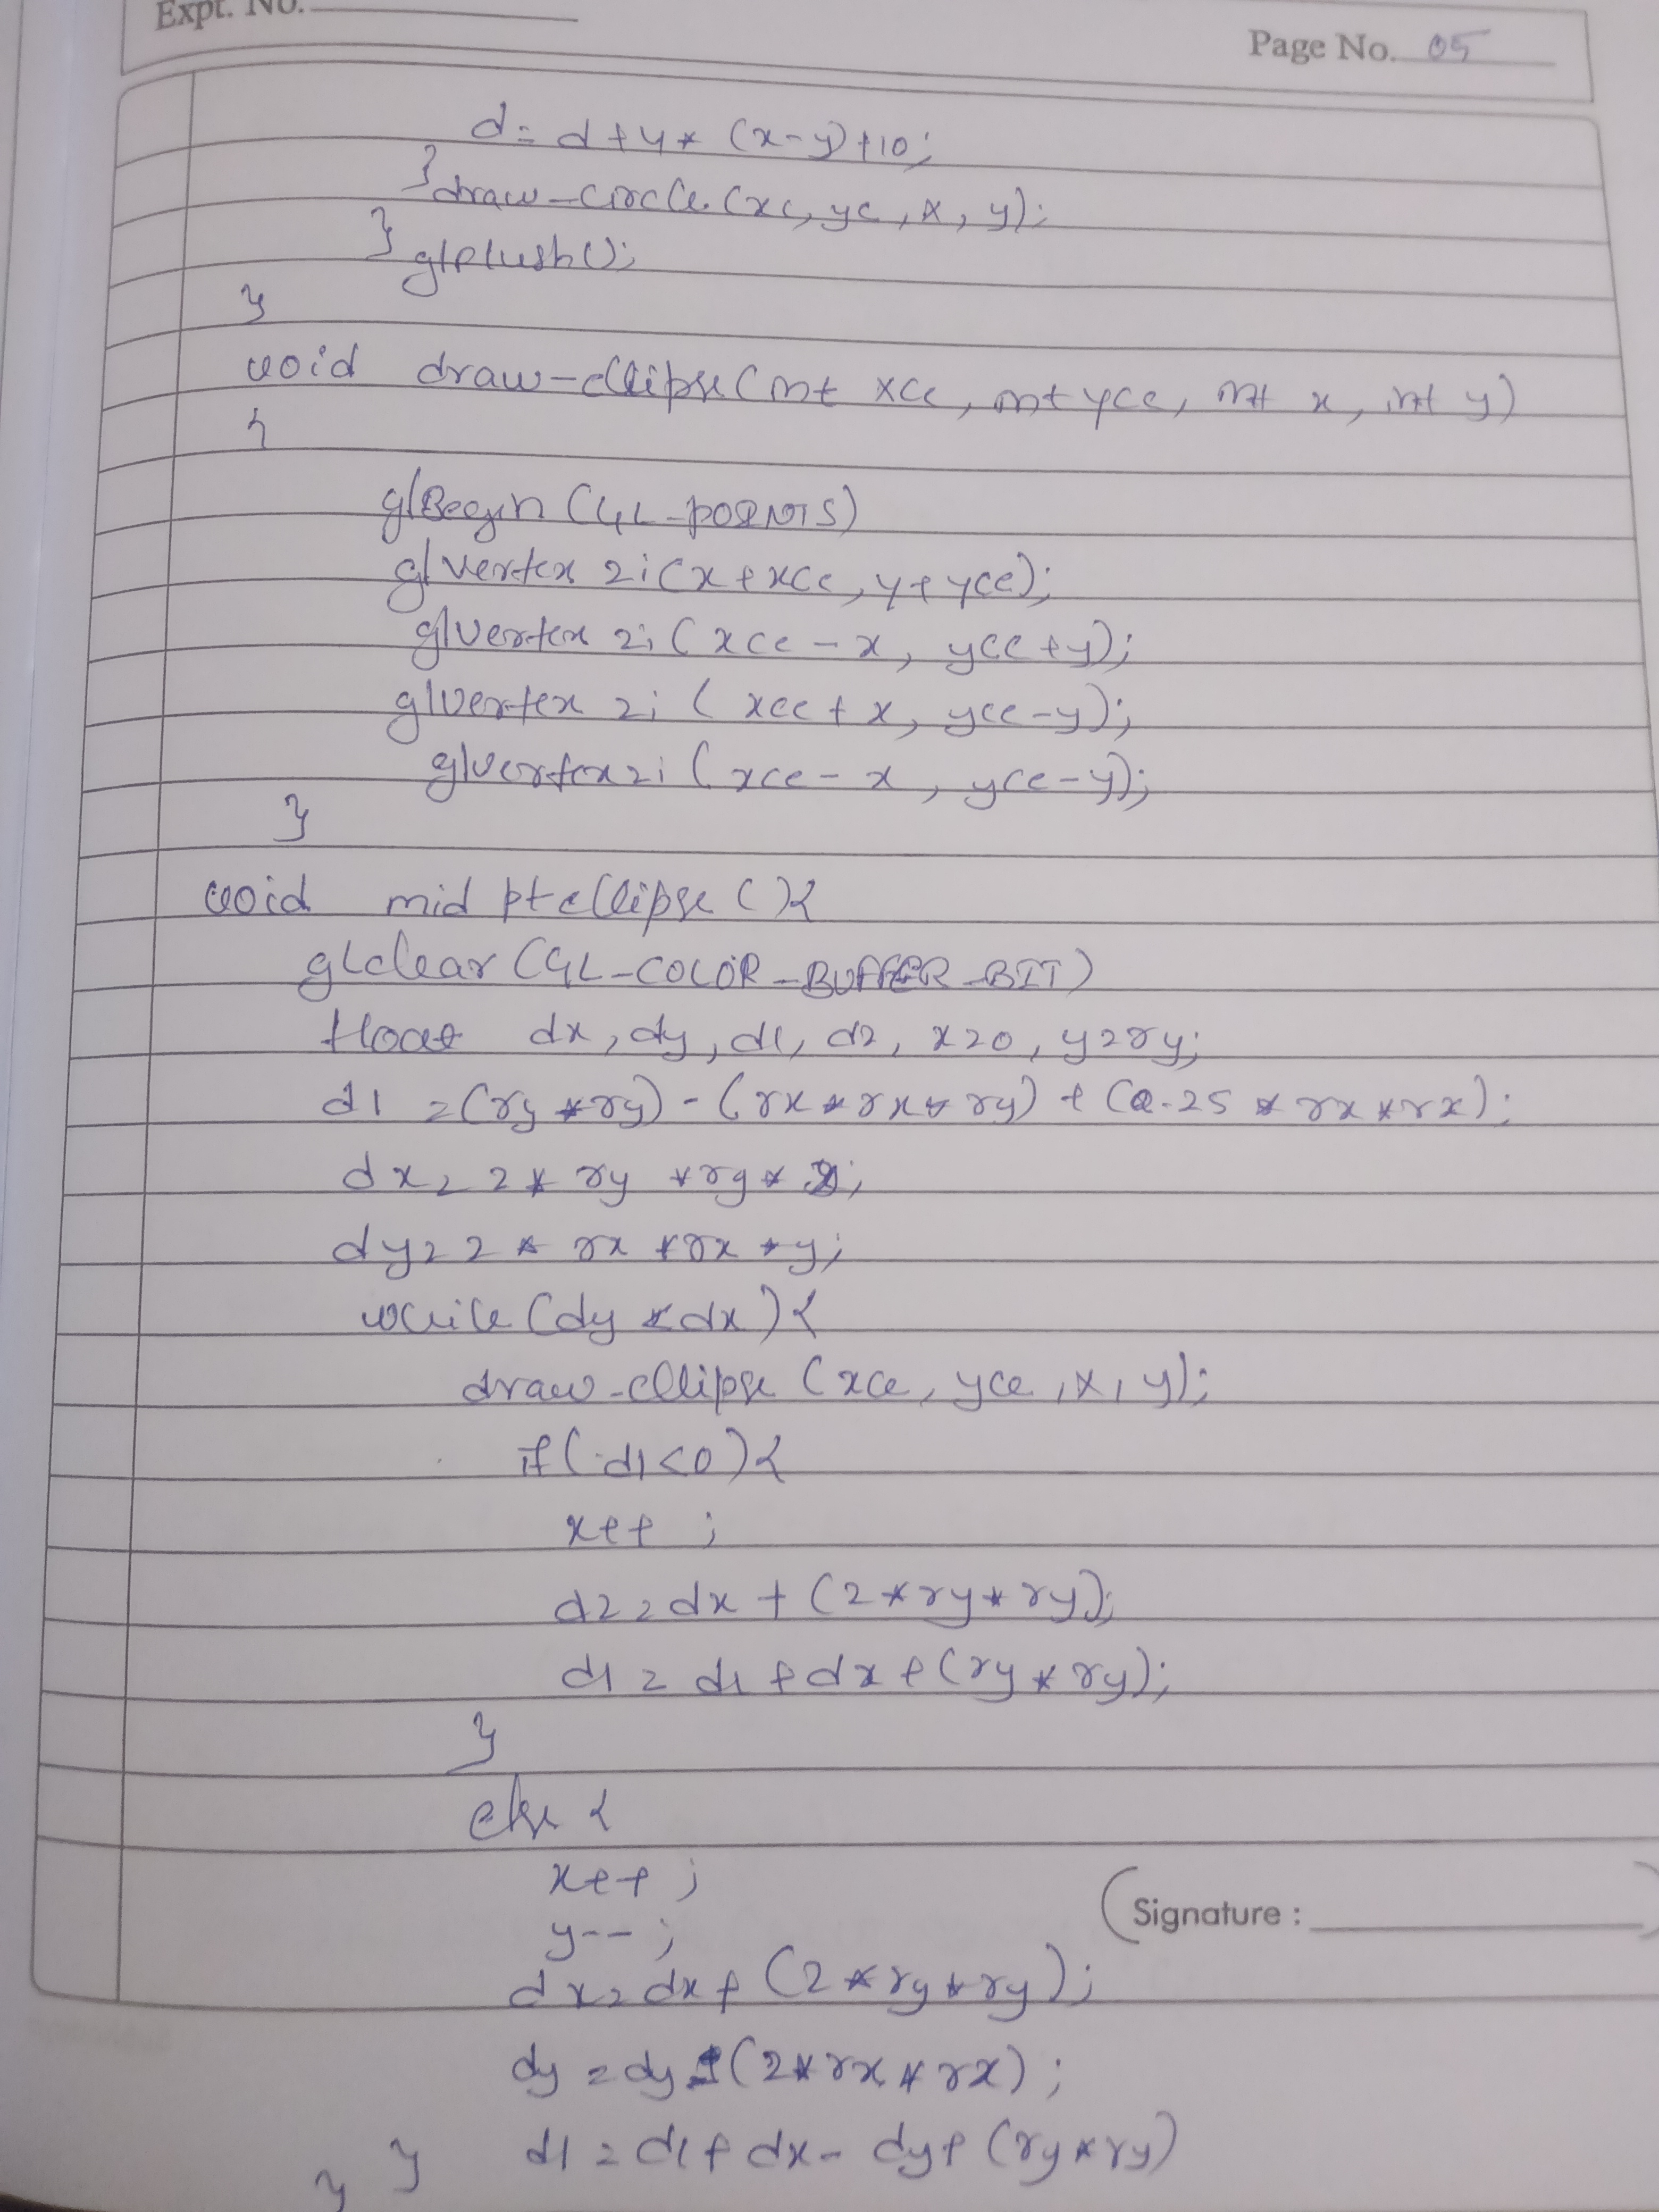 Expt. No.
Page No. 05
d = d + 4 * (x-y) + 10;
} draw-circle (xc, yc, x, y);
} glFlush();
}
void draw-ellipse (int xce, int yce, int x, int y)
{
glBegin (GL-POINTS)
glvertex 2i (x + xce, y + yce);
glvertex 2i (xce - x, yce + y);
glvertex 2i (xce + x, yce - y);
glvertex2i (xce - x, yce - y);
}
void mid ptellipse () {
glclear (GL-COLOR-BUFFER-BIT)
float dx, dy, d1, d2, x=0, y=ry;
d1 = (ry * ry) - (rx * rx * ry) + (0.25 * rx * rx);
dx = 2 * ry * ry *
dy = 2 * rx * rx * y;
while (dy < dx) {
draw-ellipse (xce, yce, x, y);
if (d1 < 0) {
x++ ;
d2 = dx + (2 * ry * ry);
d1 = d1 + dx + (ry * ry);
}
else {
x++ ;
y-- ;
Signature :
dx = dx + (2 * ry * ry);
dy = dy - (2 * rx * rx) ;
} } d1 = d1 + dx - dy + (ry * ry)